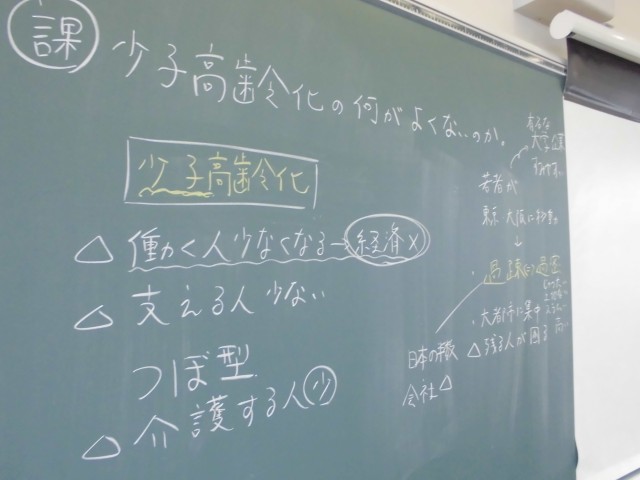 課 少子高齢化の何がよくないのか。
少子高齢化
△ 働く人少なくなる→経済×
△ 支える人少ない
つぼ型
△ 介護する人少
大学
若者が
東京 大阪に
↓
・過疎 過密
・大都市に集中
△ 残る人が困る
高い
日本の
会社△